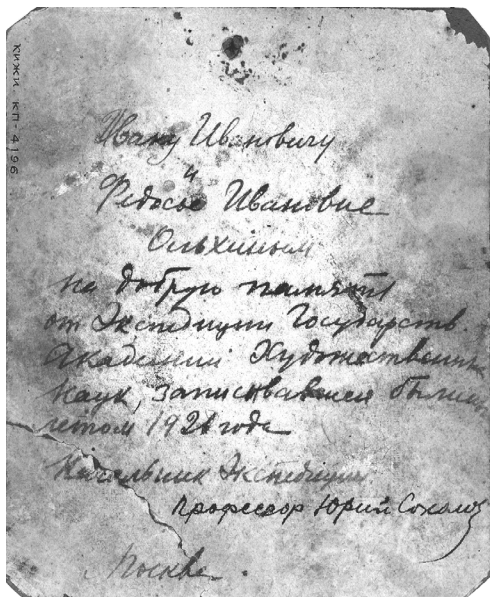 КИЖИ КП-4196
Ивану Ивановичу
и
Федосье Ивановне
Ольхиным
на добрую память
от Экспедиции Государств.
Академии Художественных
Наук, записывавшей былины
летом 1926 года
Начальник Экспедиции
профессор Юрий Соколов
Москва.